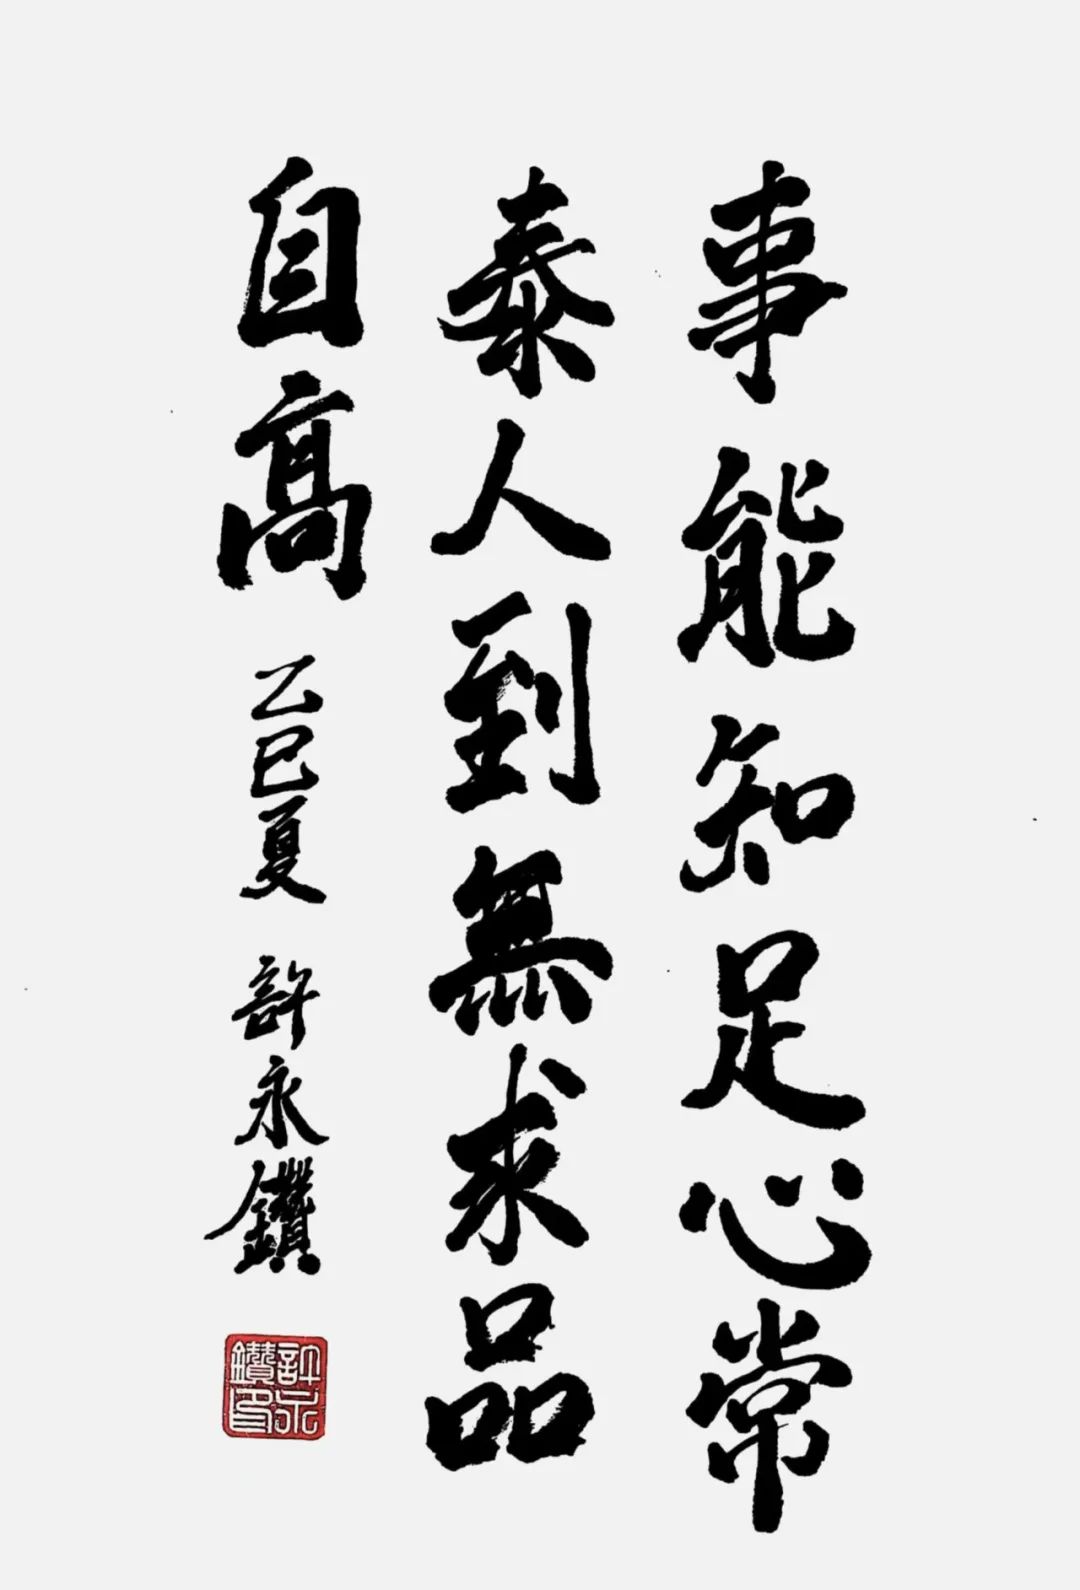 事能知足心常
泰人到無求品
自高
乙巳夏 許永鑽
許永鑽印